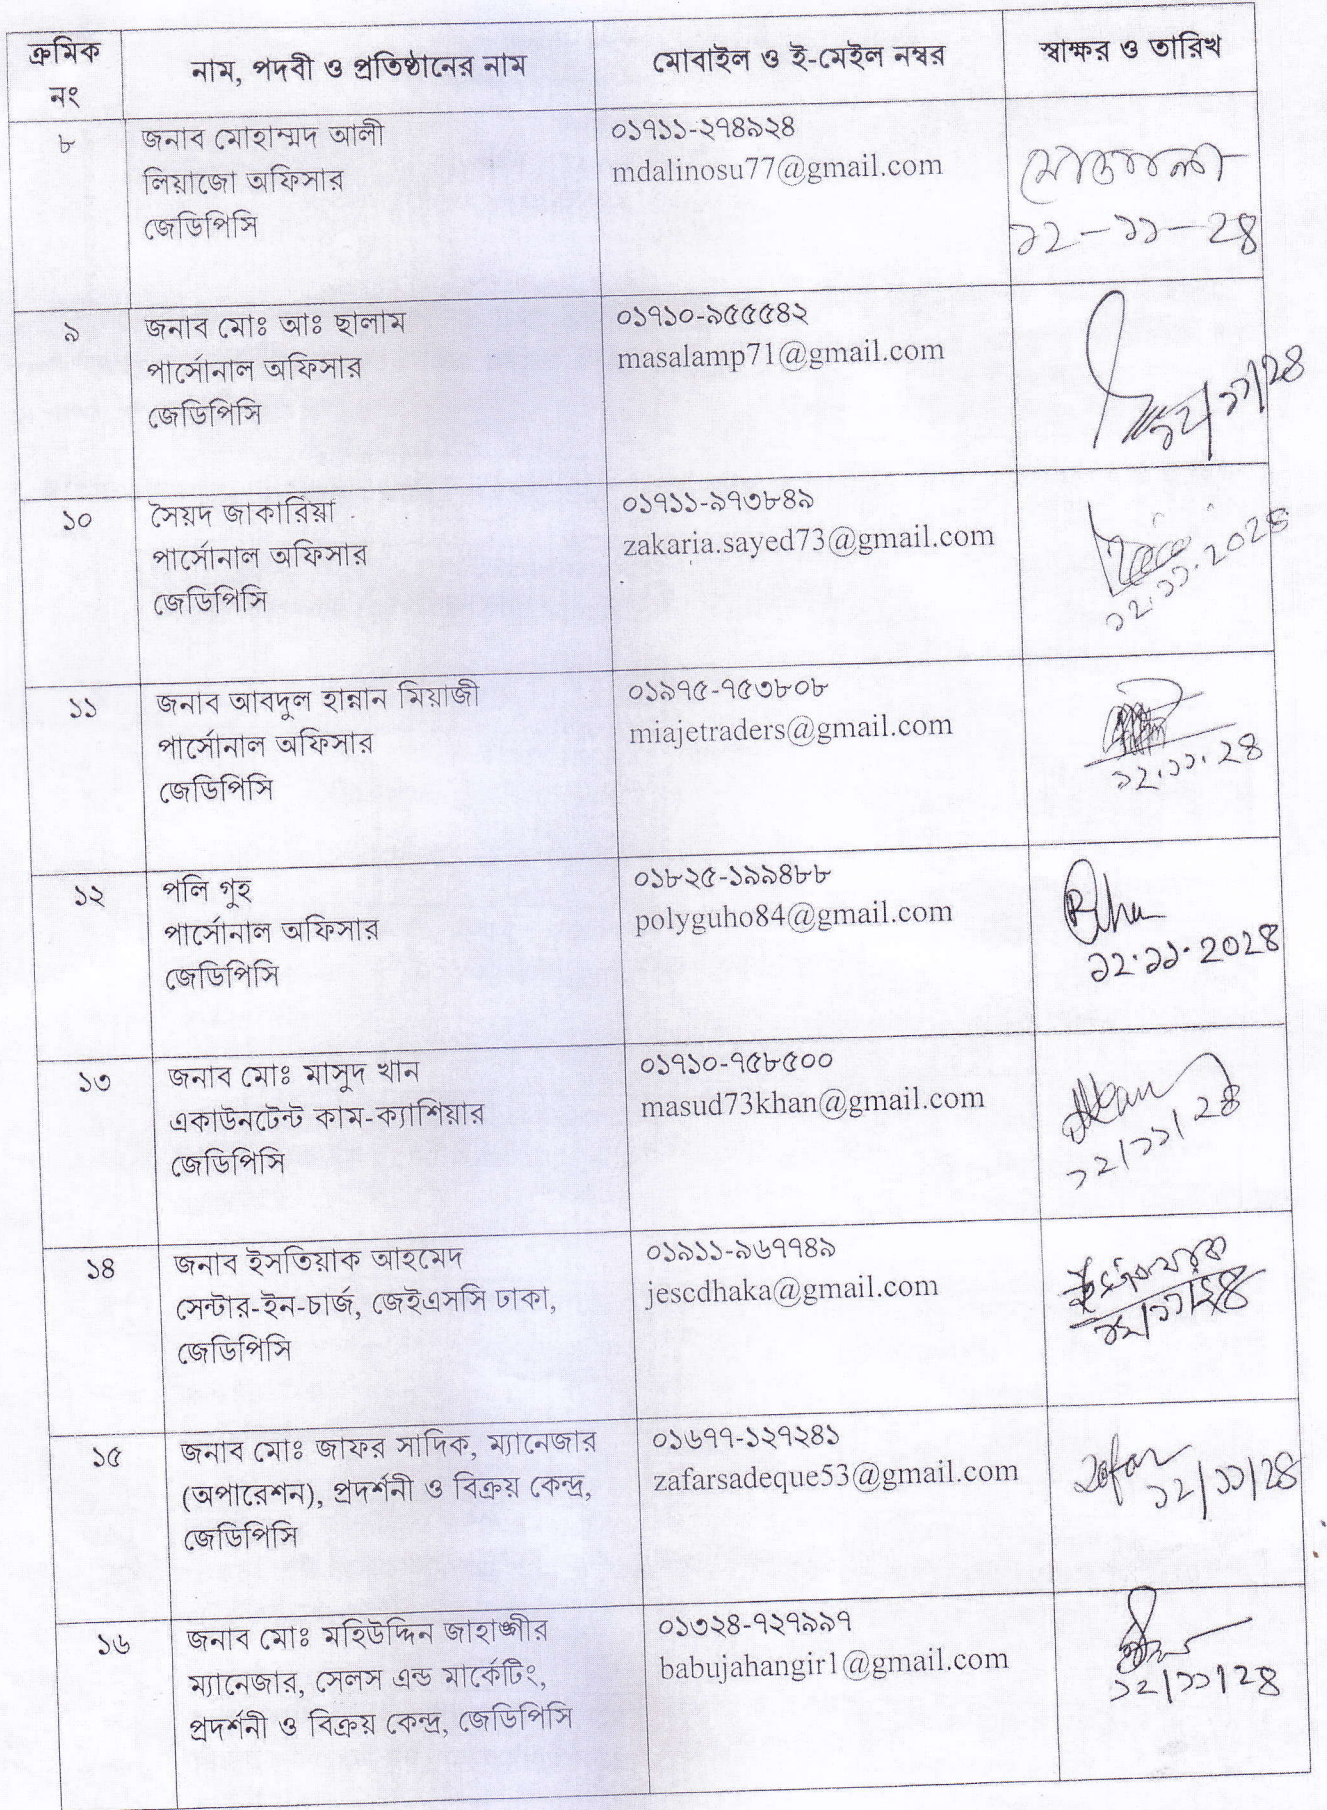 ক্রমিক নং
নাম, পদবী ও প্রতিষ্ঠানের নাম
মোবাইল ও ই-মেইল নম্বর
স্বাক্ষর ও তারিখ
৮
জনাব মোহাম্মদ আলী
লিয়াজো অফিসার
জেডিপিসি
০১৭১১-২৭৪৯২৪
mdalinosu77@gmail.com
১২-১১-২৪
৯
জনাব মোঃ আঃ ছালাম
পার্সোনাল অফিসার
জেডিপিসি
০১৭১০-৯৫৫৫৪২
masalamp71@gmail.com
১২/১১/২৪
১০
সৈয়দ জাকারিয়া
পার্সোনাল অফিসার
জেডিপিসি
০১৭১১-৯৭৩৮৪৯
zakaria.sayed73@gmail.com
১২.১১.২০২৪
১১
জনাব আবদুল হান্নান মিয়াজী
পার্সোনাল অফিসার
জেডিপিসি
০১৯৭৫-৭৫৩৮০৮
miajetraders@gmail.com
১২.১১.২৪
১২
পলি গুহ
পার্সোনাল অফিসার
জেডিপিসি
০১৮২৫-১৯৯৪৮৮
polyguho84@gmail.com
১২.১১.২০২৪
১৩
জনাব মোঃ মাসুদ খান
একাউনটেন্ট কাম-ক্যাশিয়ার
জেডিপিসি
০১৭১০-৭৫৮৫০০
masud73khan@gmail.com
১২/১১/২৪
১৪
জনাব ইসতিয়াক আহমেদ
সেন্টার-ইন-চার্জ, জেইএসসি ঢাকা,
জেডিপিসি
০১৯১১-৯৬৭৭৪৯
jescdhaka@gmail.com
১২/১১/২৪
১৫
জনাব মোঃ জাফর সাদিক, ম্যানেজার
(অপারেশন), প্রদর্শনী ও বিক্রয় কেন্দ্র,
জেডিপিসি
০১৬৭৭-১২৭২৪১
zafarsadeque53@gmail.com
Zafar
১২/১১/২৪
১৬
জনাব মোঃ মহিউদ্দিন জাহাঙ্গীর
ম্যানেজার, সেলস এন্ড মার্কেটিং,
প্রদর্শনী ও বিক্রয় কেন্দ্র, জেডিপিসি
০১৩২৪-৭২৭৯৯৭
babujahangir1@gmail.com
১২/১১/২৪